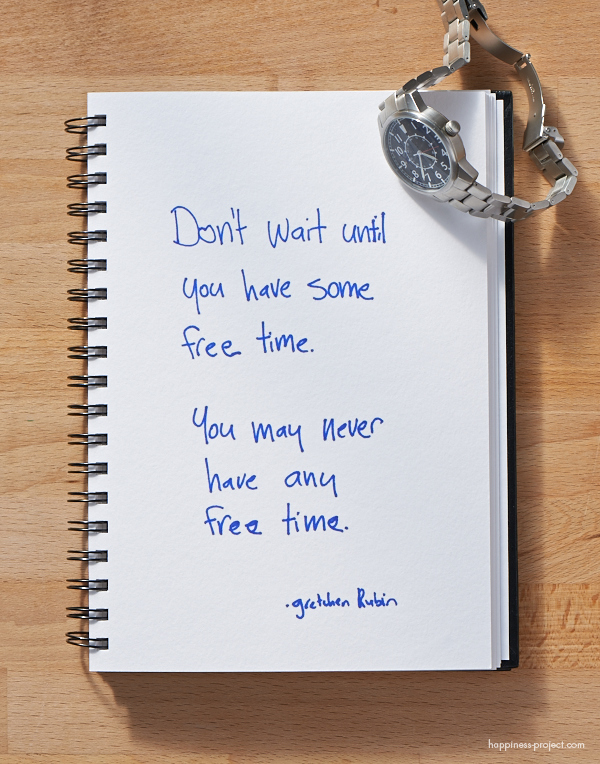 Don't wait until
you have some
free time.
You may never
have any
free time.
·gretchen Rubin
happiness-project.com